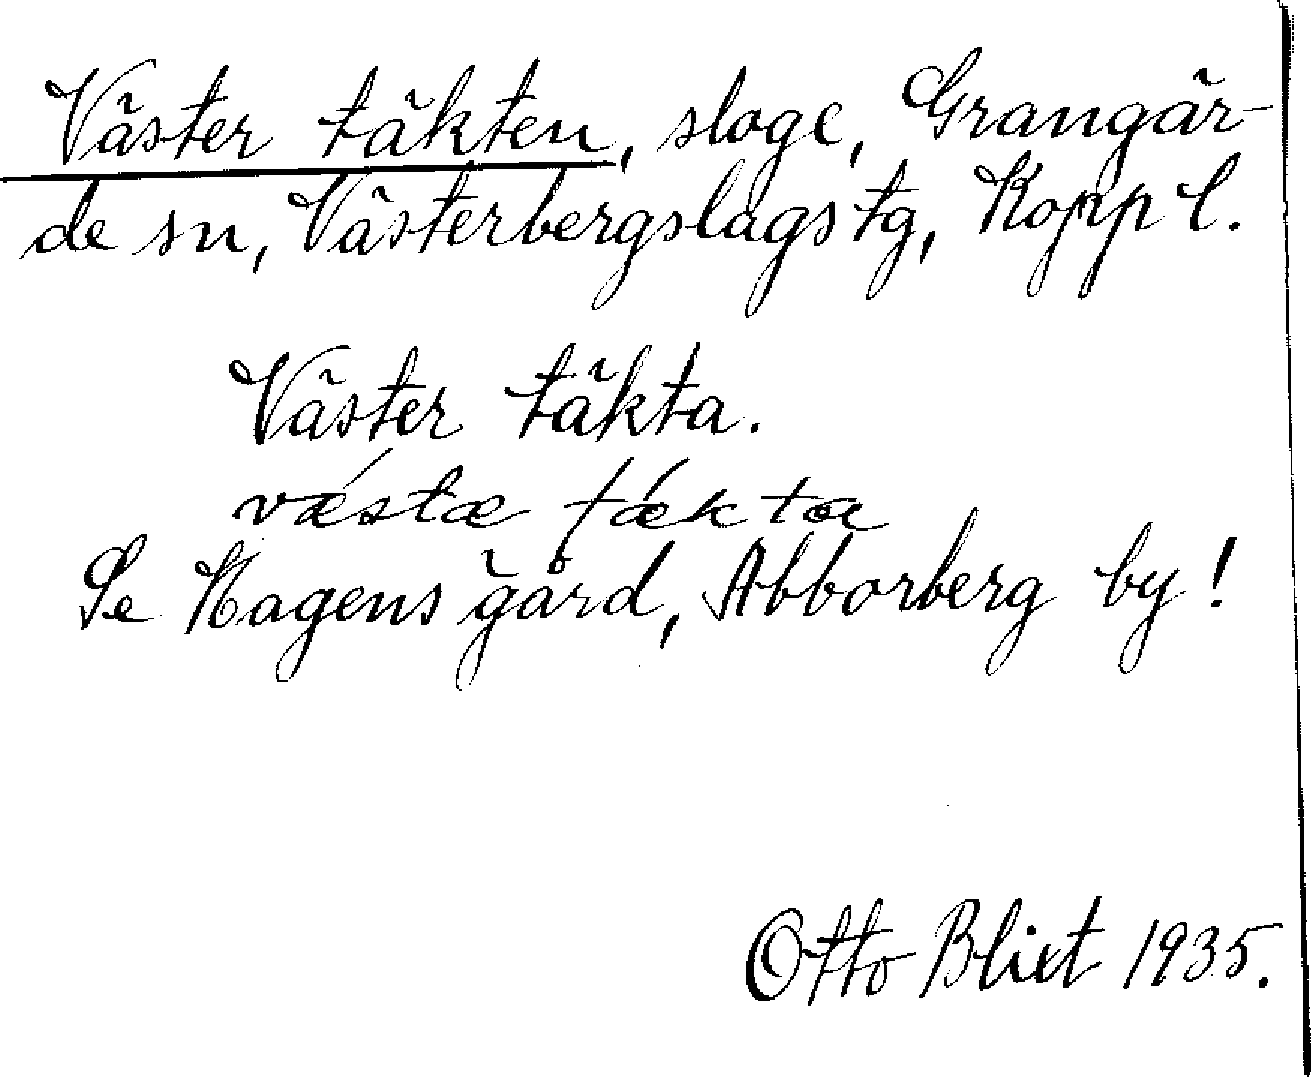 Väster täkten, sloge, Grangär-
de sn, Västerbergslags tg, Kopp l.
Väster täkta.
vǽstæ tǽkta
Se Hagens gård, Abborberg by!
Otto Blixt 1935.